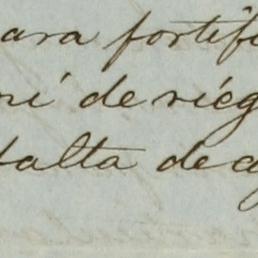 ara fortifi
ni de riég
falta de a